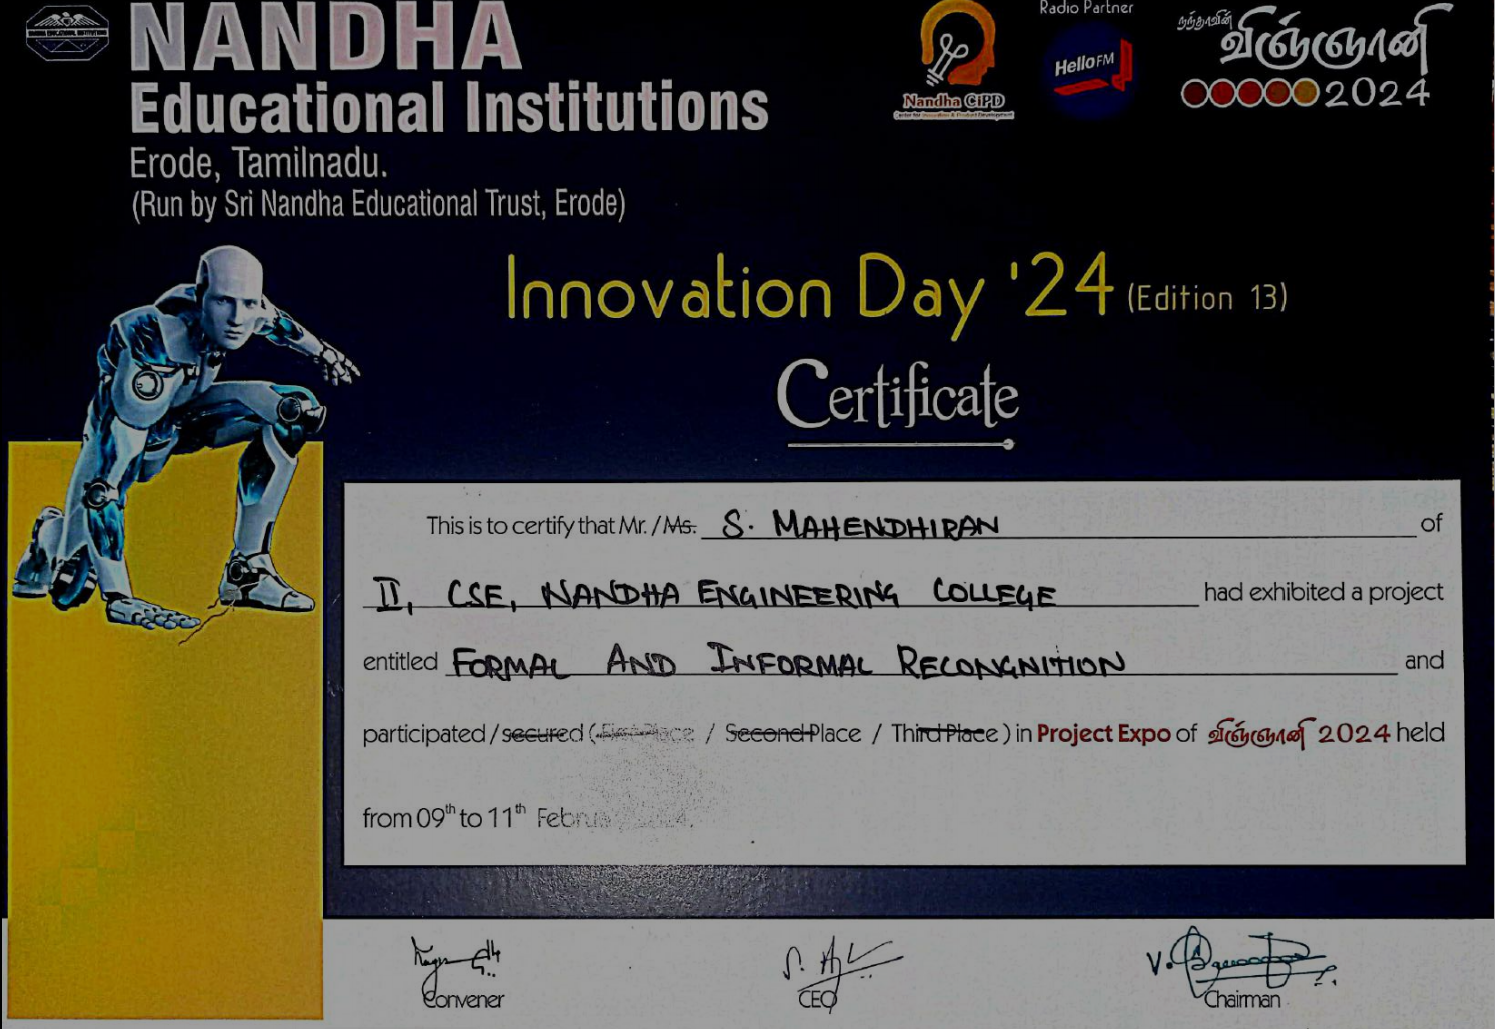 NANDHA
Educational Institutions
Erode, Tamilnadu.
(Run by Sri Nandha Educational Trust, Erode)
Nandha CIPD
Center for Innovation & Product Development
Radio Partner
Hello FM
நந்தாவின்
விஞ்ஞானி
2024
Innovation Day '24 (Edition 13)
Certificate
This is to certify that Mr. / Ms. S. MAHENDHIRAN of
II, CSE, NANDHA ENGINEERING COLLEGE had exhibited a project
entitled FORMAL AND INFORMAL RECONGNITION and
participated / secured ( First Place / Second Place / Third Place ) in Project Expo of விஞ்ஞானி 2024 held
from 09th to 11th February 2024.
Convener
CEO
Chairman